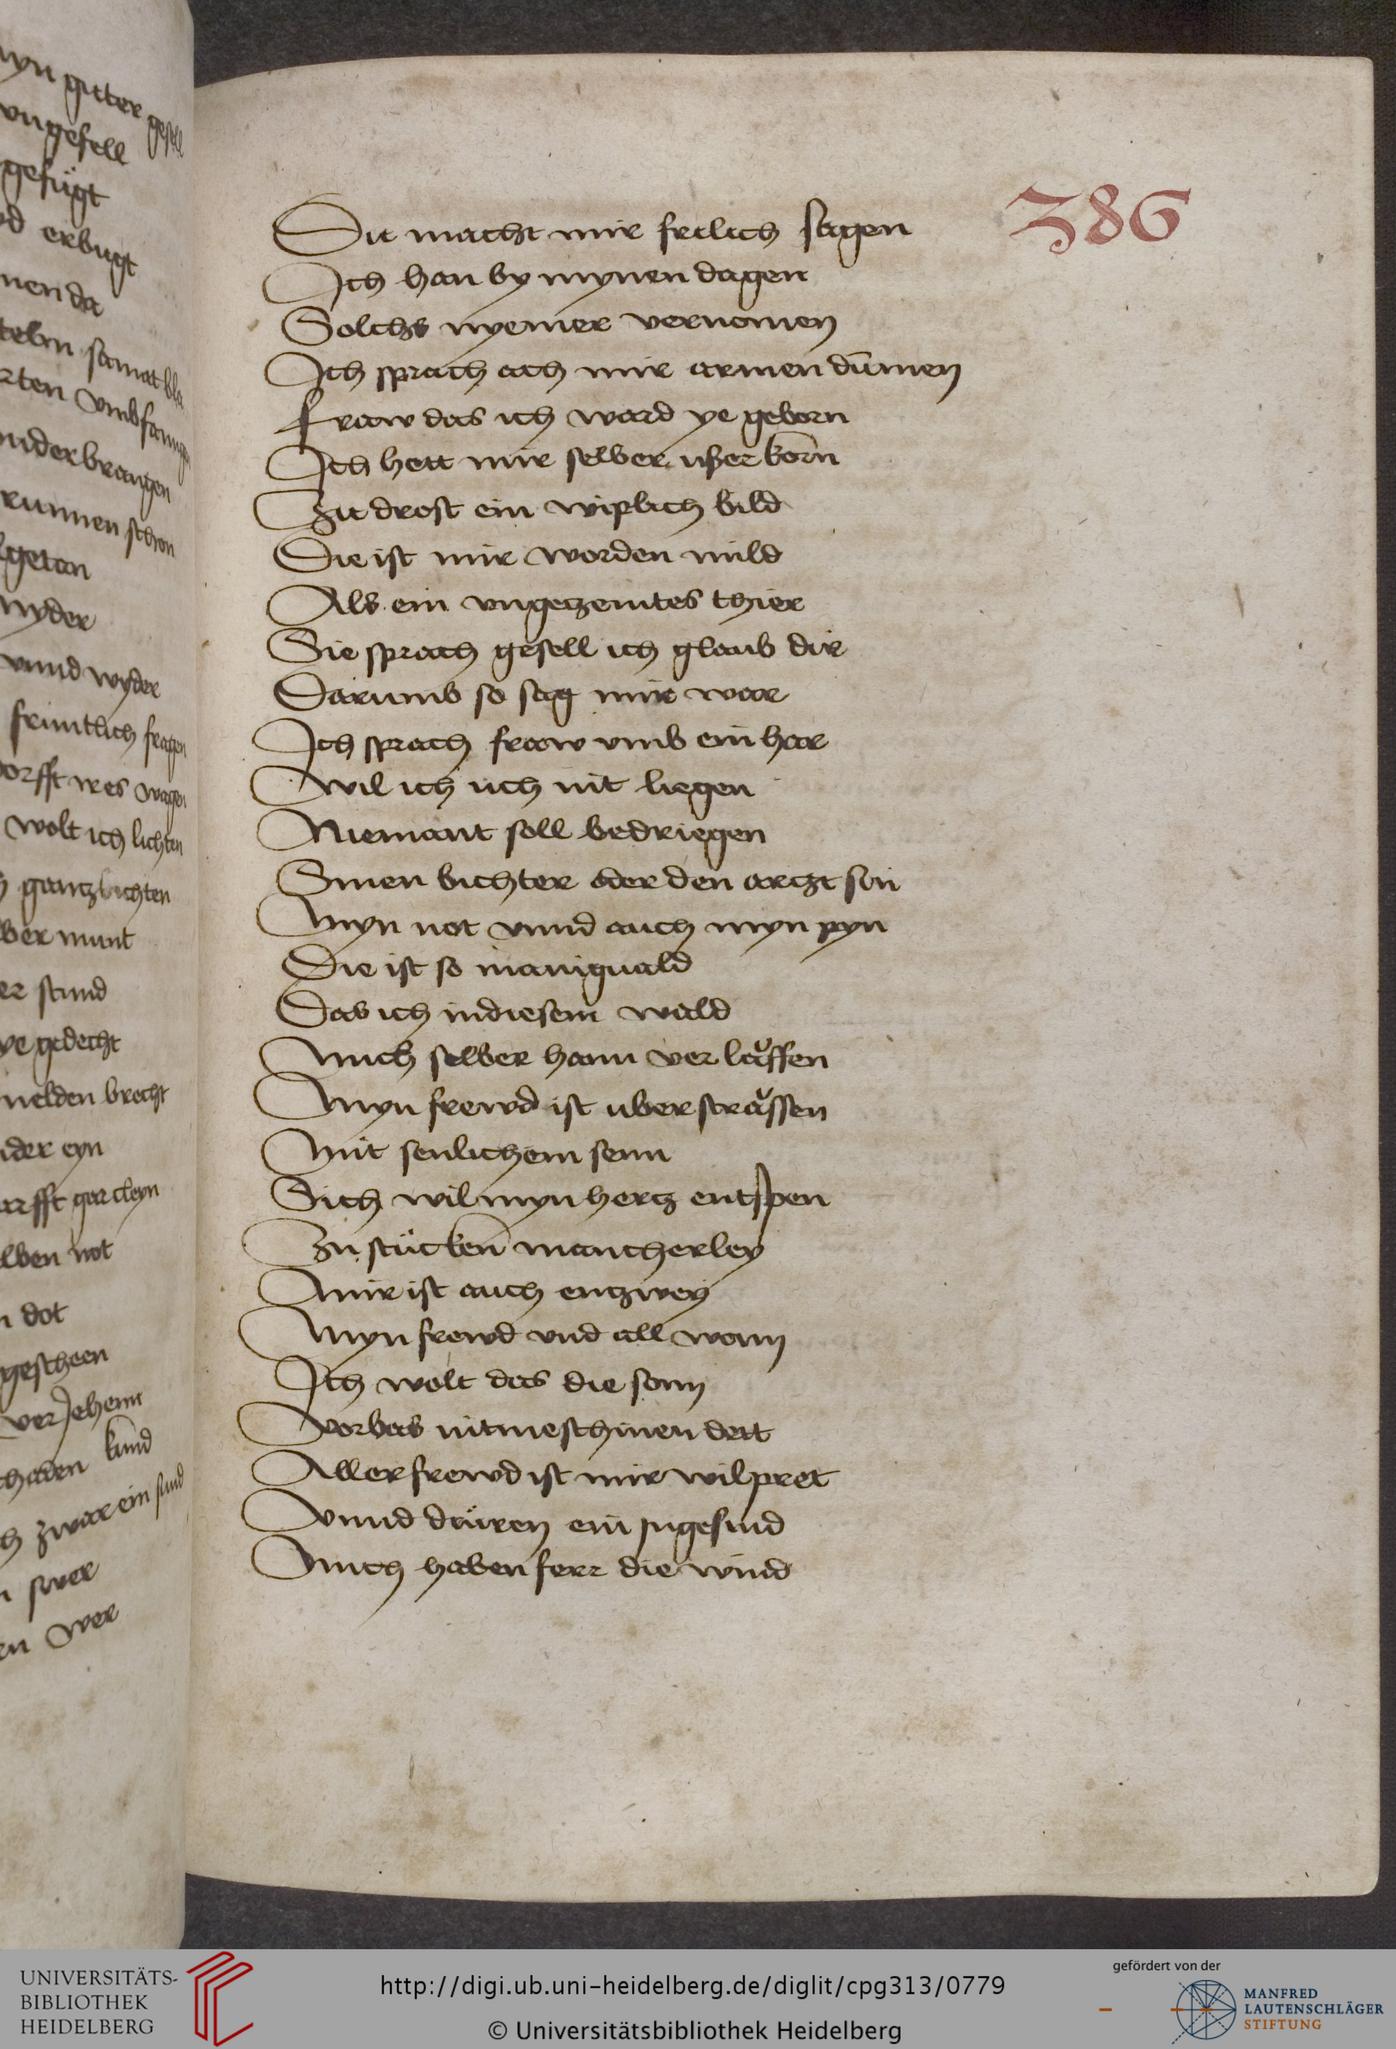 386
Du macht mir frilich sagen
Ich han by mynen dagen
Solchs nyemer vernomen
Ich sprach ach mir armen dūmen
Fraw das ich ward ye geborn
Ich hett mir selber ußerkorn
Zu drost ein wiplich bild
Die ist mir worden wild
Als ein vngezemtes thier
Sie sprach gesell ich glaub dir
Darumb so sag mir war
Ich sprach fraw vmb ein har
Wil ich uch nit liegen
Niemant soll bedriegen
Sinen bichter oder den arczt sin
Myn not vnnd auch myn pyn
Die ist so maniguald
Das ich in diesem wald
Mich selber hann verlaͧssen
Myn frewd ist uber straͧssen
Mit senlichem senn
Sich wil myn hercz entspen
Zu stücken mancherley
Mir ist auch enczwey
Myn frewd vnd all wonn
Ich wolt das die sonn
Vorbas nit me schinen dett
Aller frewd ist mir wilpret
Vnnd drüren ein Ingesind
Mich haben ferr die wind
myn guter gesell
vngefell
gefügt
erbugt
samat
vmbfangen
brangen
brunnen schon
getan
nyder
vnnd wyder
früntlich fragen
wes wagen
wolt ich lichten
gancz bichten
munt
stund
ye gedecht
melden brecht
eyn
gar cleyn
not
dot
gescheen
verJehenn
schaden kund
zwar ein
swer
wer
UNIVERSITÄTS-
BIBLIOTHEK
HEIDELBERG
http://digi.ub.uni-heidelberg.de/diglit/cpg313/0779
© Universitätsbibliothek Heidelberg
gefördert von der
MANFRED
LAUTENSCHLÄGER
STIFTUNG